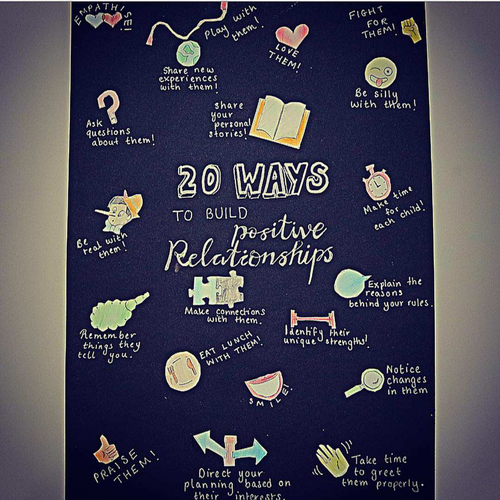 EMPATHISE!
Play with
them!
LOVE
THEM!
FIGHT
FOR
THEM!
Share new
experiences
with them!
Be silly
with them!
Ask
questions
about them!
share
your
personal
stories!
20 WAYS
TO BUILD
positive
Relationships
Make time
for
each child!
Be
real with
them!
Make connections
with them.
Explain the
reasons
behind your rules.
Remember
things they
tell you.
Identify their
unique strengths!
EAT LUNCH
WITH THEM!
SMILE!
Notice
changes
in them
PRAISE
THEM!
Direct your
planning based on
their interests.
Take time
to greet
them properly.